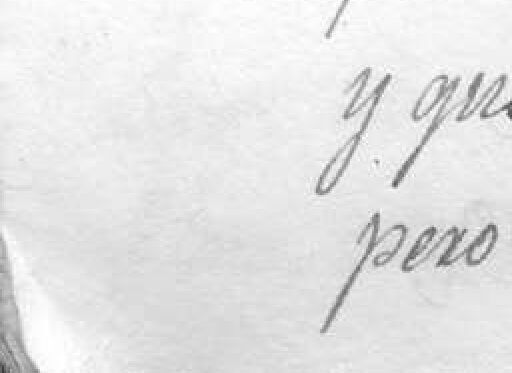 y qu
pero